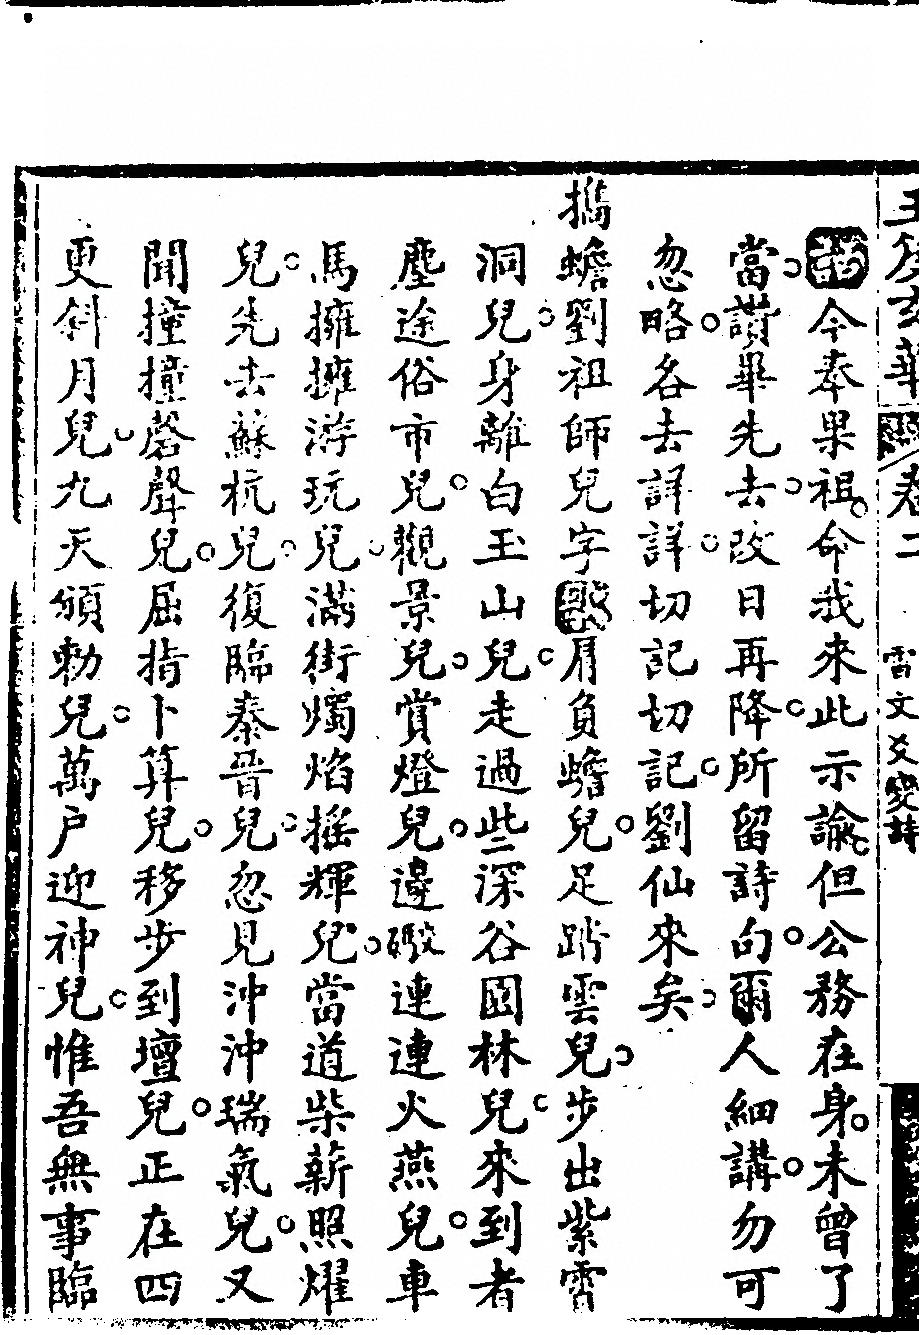 今奉果祖命我來此示諭但公務在身未曾了
當讚畢先去改日再降所留詩句爾人細講勿可
忽略各去詳詳切記切記劉仙來矣
擕蟾劉祖師兒字歌肩負蟾兒足踏雲兒步出紫霄
洞兒身離白玉山兒走過些深谷園林兒來到者
塵途俗市兒觀景兒賞燈兒邊礟連連火燕兒車
馬擁擁游玩兒滿街燭焰搖輝兒當道柴薪照耀
兒先去蘇杭兒復臨秦晉兒忽見沖沖瑞氣兒又
聞撞撞磬聲兒屈指卜算兒移步到壇兒正在四
更斜月兒九天頒勅兒萬户迎神兒惟吾無事臨
卷二